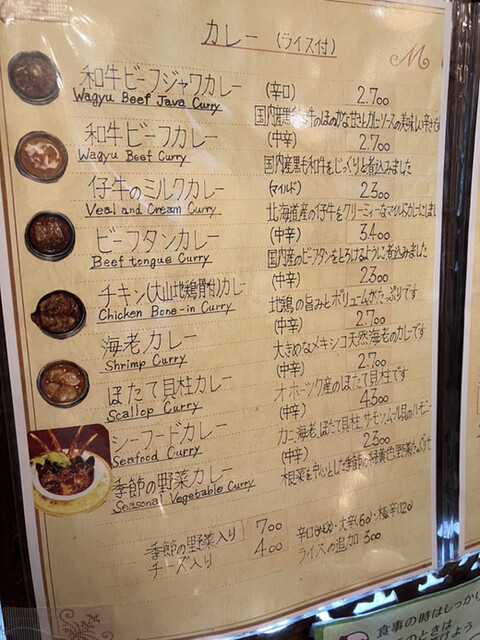 カレー (ライス付)
和牛ビーフジャワカレー (辛口) 2.700
Wagyu Beef Java Curry
和牛ビーフカレー (中辛) 2.700
Wagyu Beef Curry
国内産黒毛和牛をじっくりと煮込みました
仔牛のミルクカレー (マイルド) 2.300
Veal and Cream Curry
北海道産の仔牛をクリーミーなマイルドカレーにしま
ビーフタンカレー (中辛) 3.400
Beef tongue Curry
国内産のビーフタンをとろけるように煮込みました
チキン(大山地鶏骨付)カレー (中辛) 2.300
Chicken Bone-in Curry
地鶏の旨みとボリュームがたっぷりです
海老カレー (中辛) 2.700
Shrimp Curry
大きめなメキシコ天然海老のカレーです
ほたて貝柱カレー (中辛) 2.700
Scallop Curry
オホーツク産のほたて貝柱です
シーフードカレー (中辛) 4.300
Seafood Curry
カニ、海老、ほたて貝柱、サーモン、ムール貝のハーモニー
季節の野菜カレー (中辛) 2.300
Seasonal Vegetable Curry
根菜を中心とした季節の緑黄色野菜
季節の野菜入り 700
チーズ入り 400
辛口・大辛(60)・極辛(120)
ライスの追加 300
食事の時はしっかり
のときは